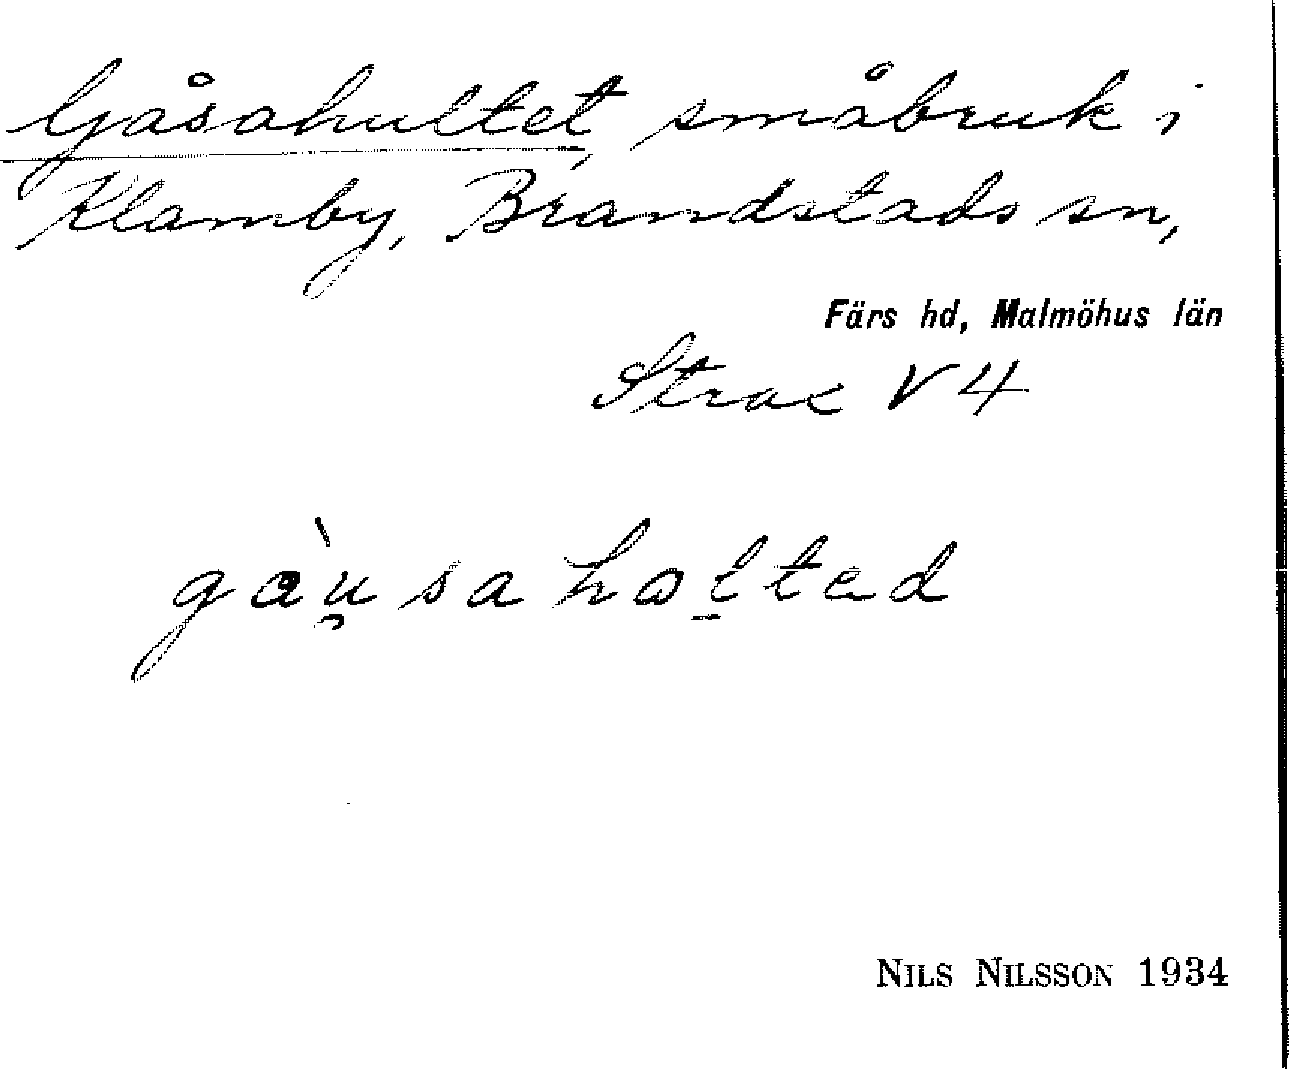 Gåsahultet, småbruk i
Klamby, Brandstads sn,
Färs hd, Malmöhus län
Strax V 4
gàu̯saholtəd
NILS NILSSON 1934